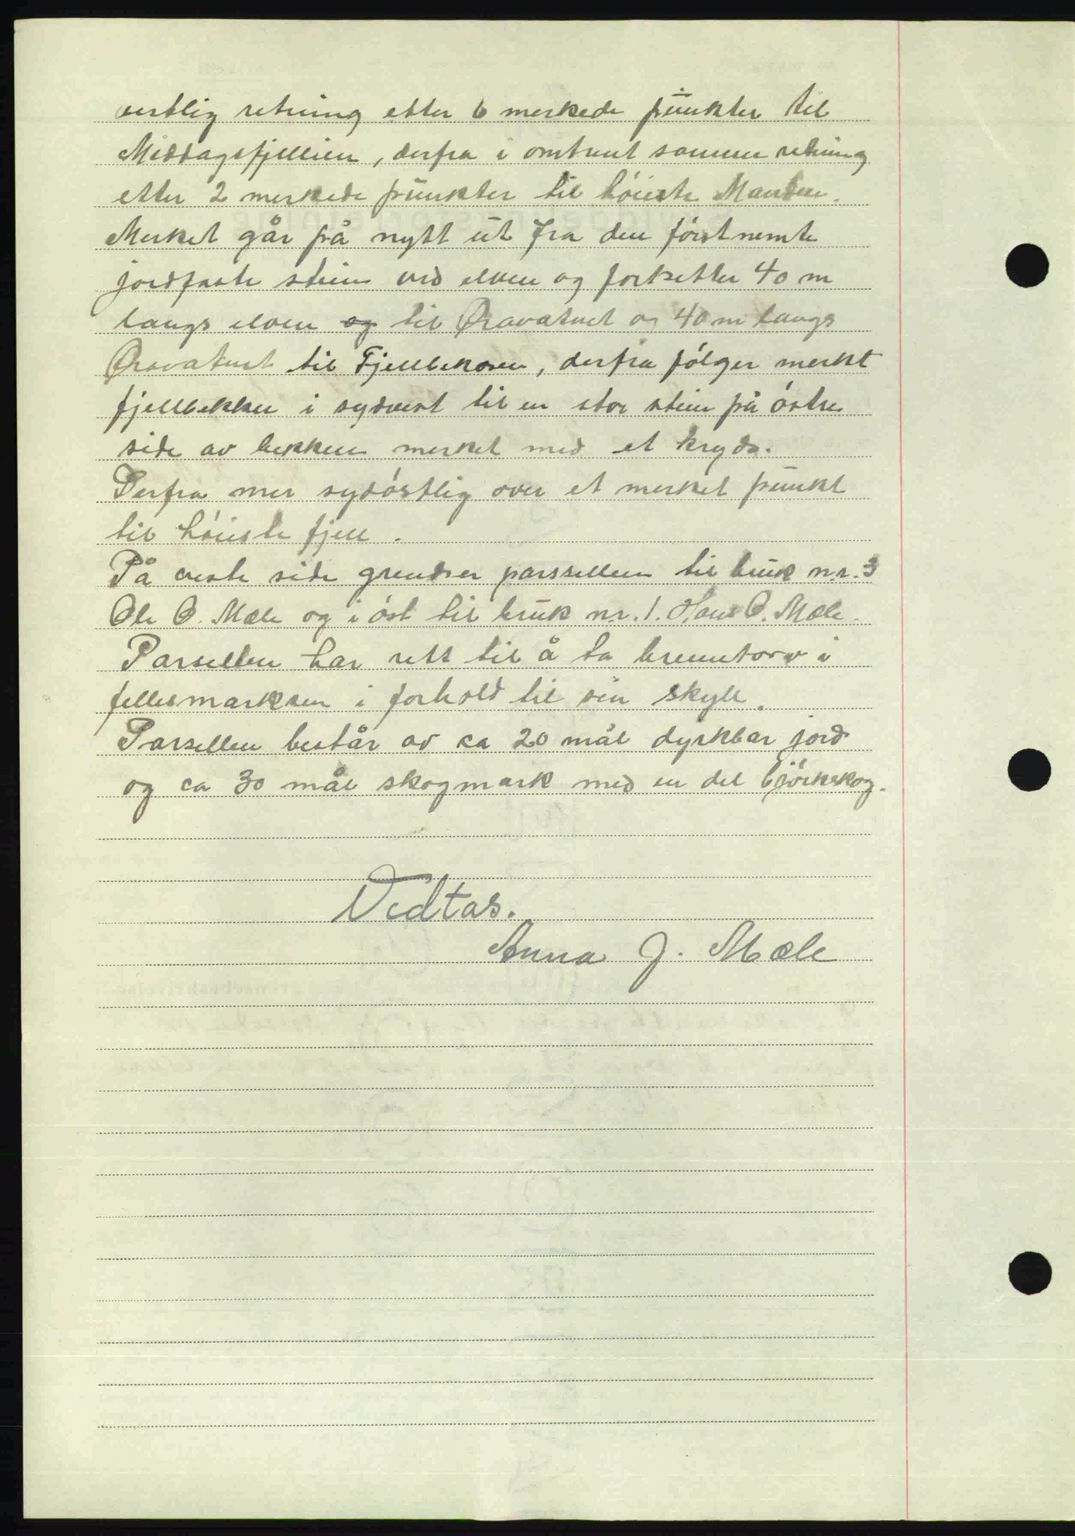 vestlig retning etter 6 merkede punkter til
Middagsfjellien, derfra i omtrent samme retning
etter 2 merkede punkter til høieste Manden.
Merket går på nytt ut fra den førstnemte
jordfaste stein ved elven og fortsetter 40 m
langs elven og til Øravatnet og 40 m langs
Øravatnet til Fjellbekken, derfra følger merket
fjellbekken i sydvest til en stor stein på østre
side av bekken merket med et kryds.
Derfra mer sydøstlig over et merket punkt
til høieste fjell.
På veste side grendser parsellen til bruk nr. 3
Ole O. Mæle og i øst til bruk nr. 1. Hans O. Mæle.
Parsellen har rett til å ta brenntorv i
fellesmarken i forhold til sin skyll.
Parsellen består av ca 20 mål dyrkbar jord
og ca 30 mål skogmark med en del bjørkskog.
Vedtas.
Anna J. Mæle